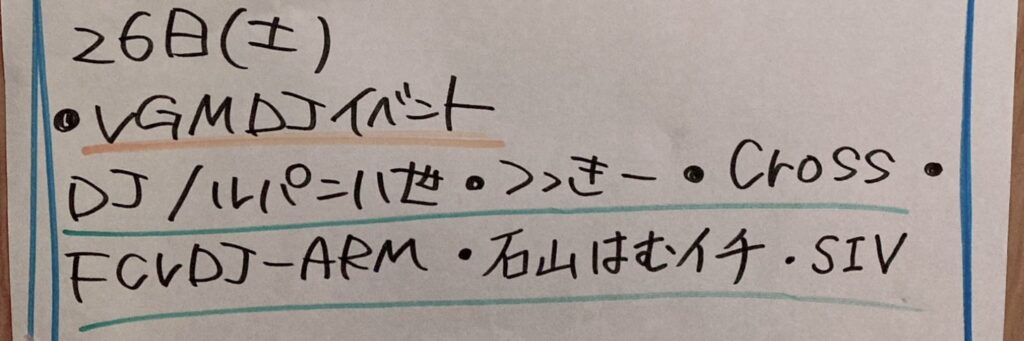 26日(土)
・VGMDJイベント
DJ/ルパン八世・つっきー・Cross・
FCVDJ-ARM・石山はむイチ・SIV